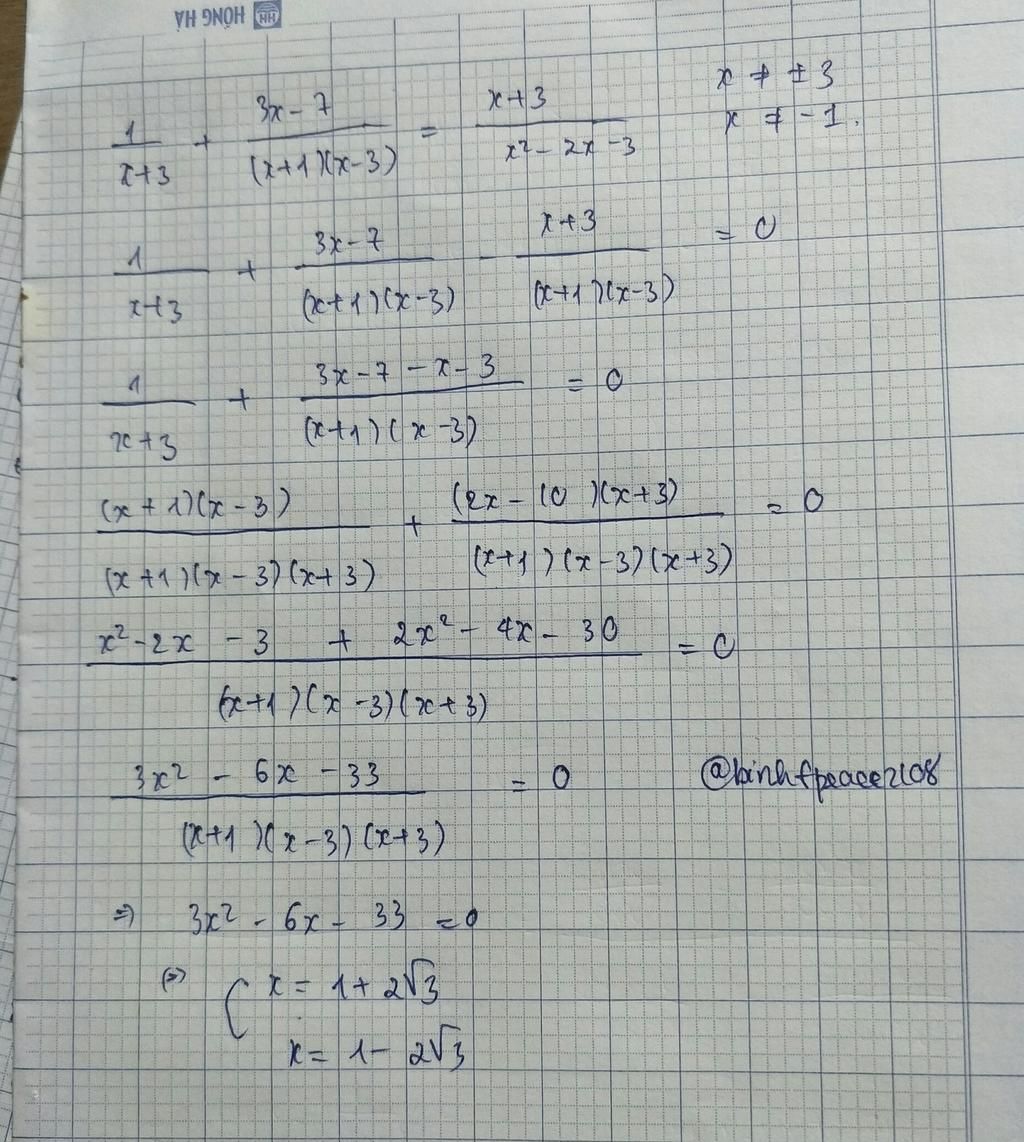 HỒNG HÀ HH
1/(x+3) + (3x-7)/((x+1)(x-3)) = (x+3)/(x²-2x-3) x ≠ ±3
x ≠ -1.
1/(x+3) + (3x-7)/((x+1)(x-3)) - (x+3)/((x+1)(x-3)) = 0
1/(x+3) + (3x-7-x-3)/((x+1)(x-3)) = 0
((x+1)(x-3))/((x+1)(x-3)(x+3)) + ((2x-10)(x+3))/((x+1)(x-3)(x+3)) = 0
(x²-2x-3 + 2x²-4x-30)/((x+1)(x-3)(x+3)) = 0
(3x²-6x-33)/((x+1)(x-3)(x+3)) = 0 @binhfpeace2108
=> 3x²-6x-33 = 0
(=) ( x = 1+2√3
x = 1-2√3